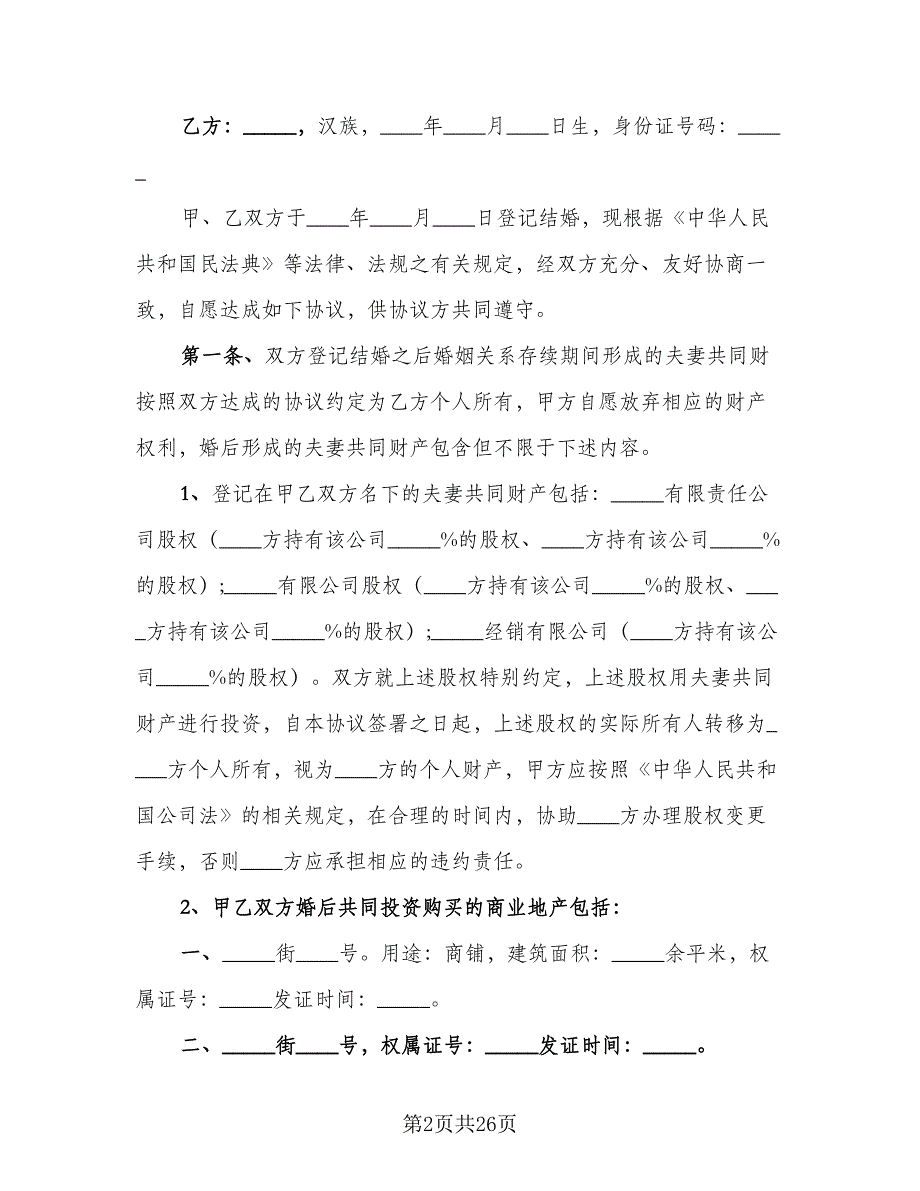 乙方：_____，汉族，____年____月____日生，身份证号码：____
_
甲、乙双方于____年____月____日登记结婚，现根据《中华人民
共和国民法典》等法律、法规之有关规定，经双方充分、友好协商一
致，自愿达成如下协议，供协议方共同遵守。
第一条、双方登记结婚之后婚姻关系存续期间形成的夫妻共同财
按照双方达成的协议约定为乙方个人所有，甲方自愿放弃相应的财产
权利，婚后形成的夫妻共同财产包含但不限于下述内容。
1、登记在甲乙双方名下的夫妻共同财产包括：_____有限责任公
司股权（____方持有该公司_____%的股权、____方持有该公司_____%
的股权）;_____有限公司股权（____方持有该公司_____%的股权、___
_方持有该公司_____%的股权）;_____经销有限公司（____方持有该公
司_____%的股权）。双方就上述股权特别约定，上述股权用夫妻共同
财产进行投资，自本协议签署之日起，上述股权的实际所有人转移为_
___方个人所有，视为____方的个人财产，甲方应按照《中华人民共和
国公司法》的相关规定，在合理的时间内，协助____方办理股权变更
手续，否则____方应承担相应的违约责任。
2、甲乙双方婚后共同投资购买的商业地产包括：
一、_____街____号。用途：商铺，建筑面积：_____余平米，权
属证号：_____发证时间：_____。
二、_____街____号，权属证号：_____发证时间：_____。
第2页共26页